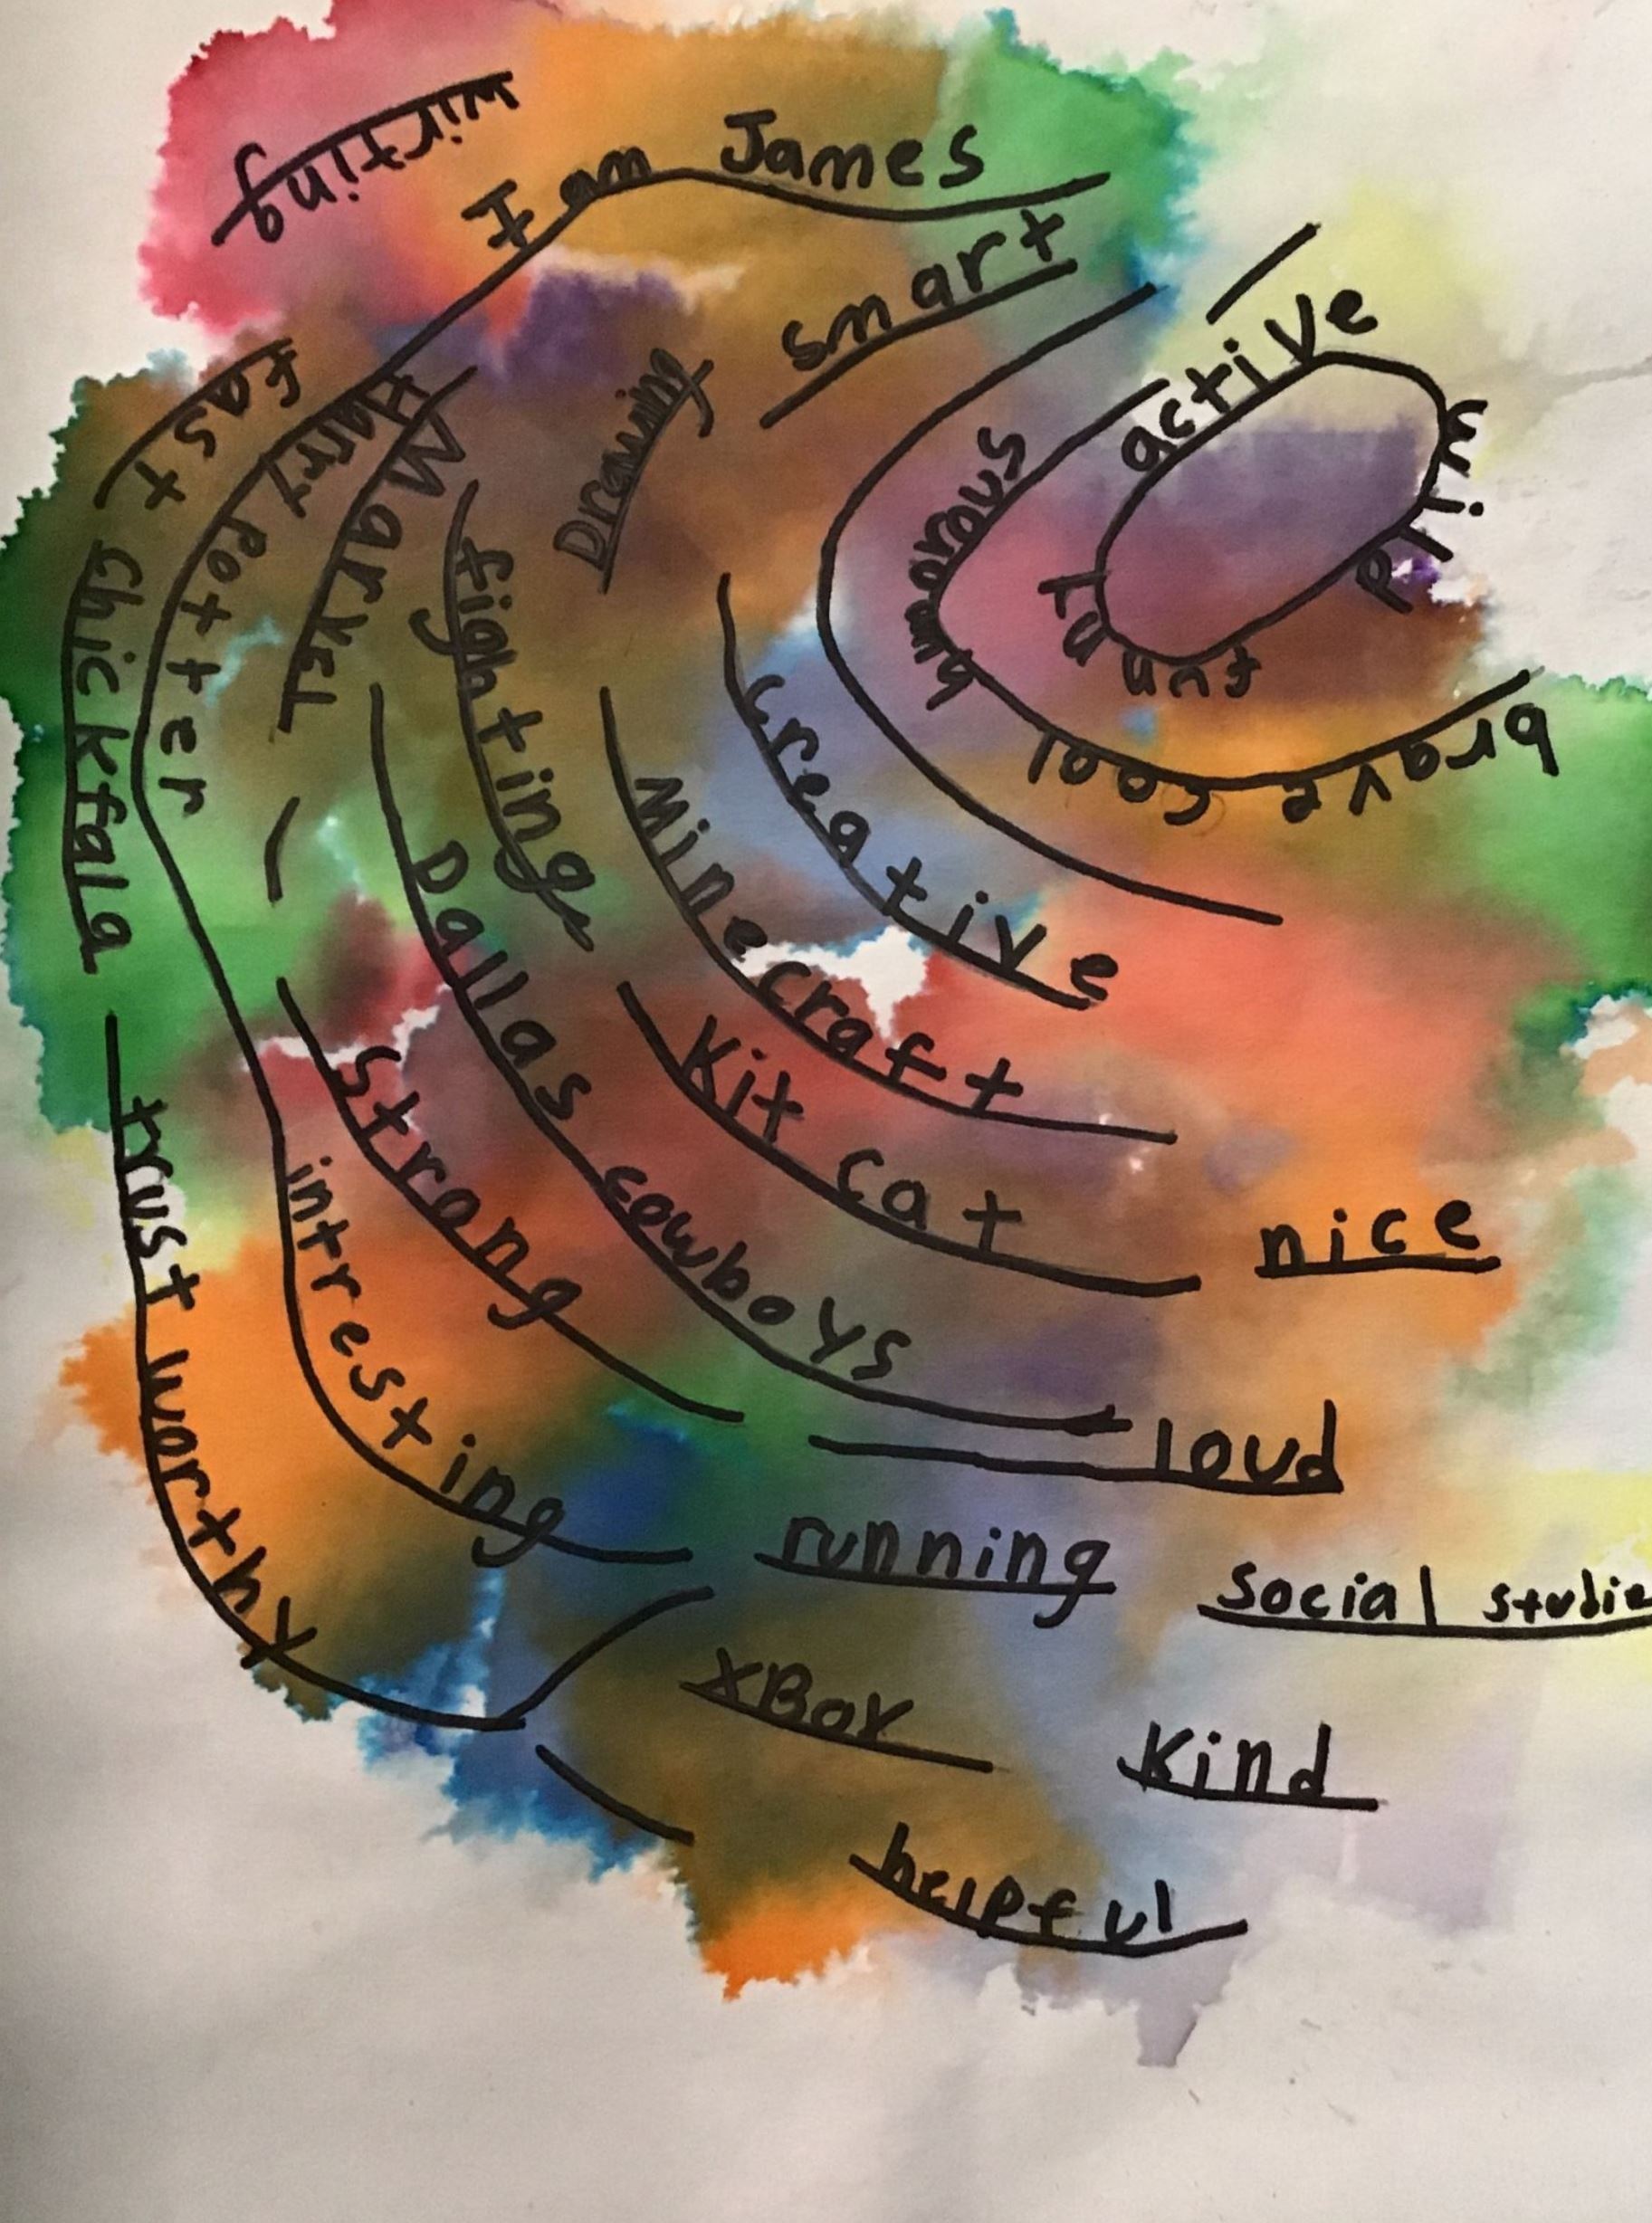 wirting
I am James
smart
active
wild
funny
humorous
cool
brave
Drawing
fast
chickfala
Harry Potter
Marvel
fighting
creative
Minecraft
Kit cat
Dallas cowboys
strong
intresting
trust worthy
nice
loud
running
social studie
XBox
Kind
helpful